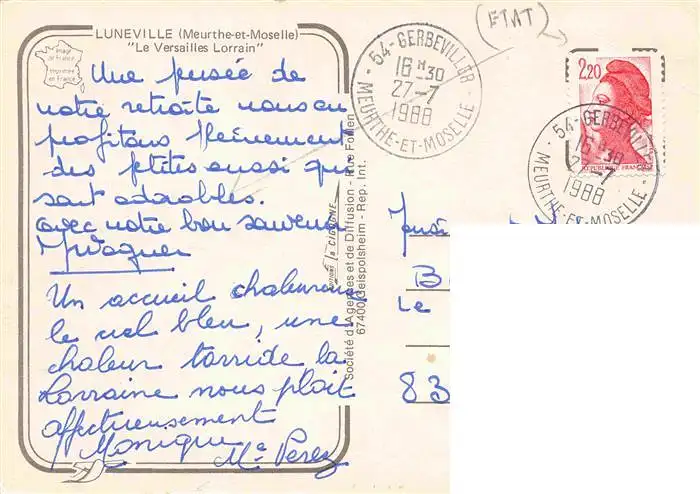 LUNEVILLE (Meurthe-et-Moselle)
"Le Versailles Lorrain"
Image de France
Imprimée en France
Une pensée de
notre retraite nous en
profitons pleinement
des ptites aussi qui
sont adorables.
avec notre bon souvenir
JWagner
Un accueil chaleureux
le ciel bleu, une
chaleur torride la
Lorraine nous plait
affectueusement
Monique
Mᵉ Perez
EDITIONS la CIGOGNE
Société d'Agences et de Diffusion - Rue
67400 Geispolsheim - Rep. Int.
54-GERBEVILLER
16 H 30
27-7
1988
MEURTHE-ET-MOSELLE
(ETAT)
2,20
REPUBLIQUE FRANCAISE
54-GERBEVILLER
30
-7
1988
MEURTHE-ET-MOSELLE
B
Le
83